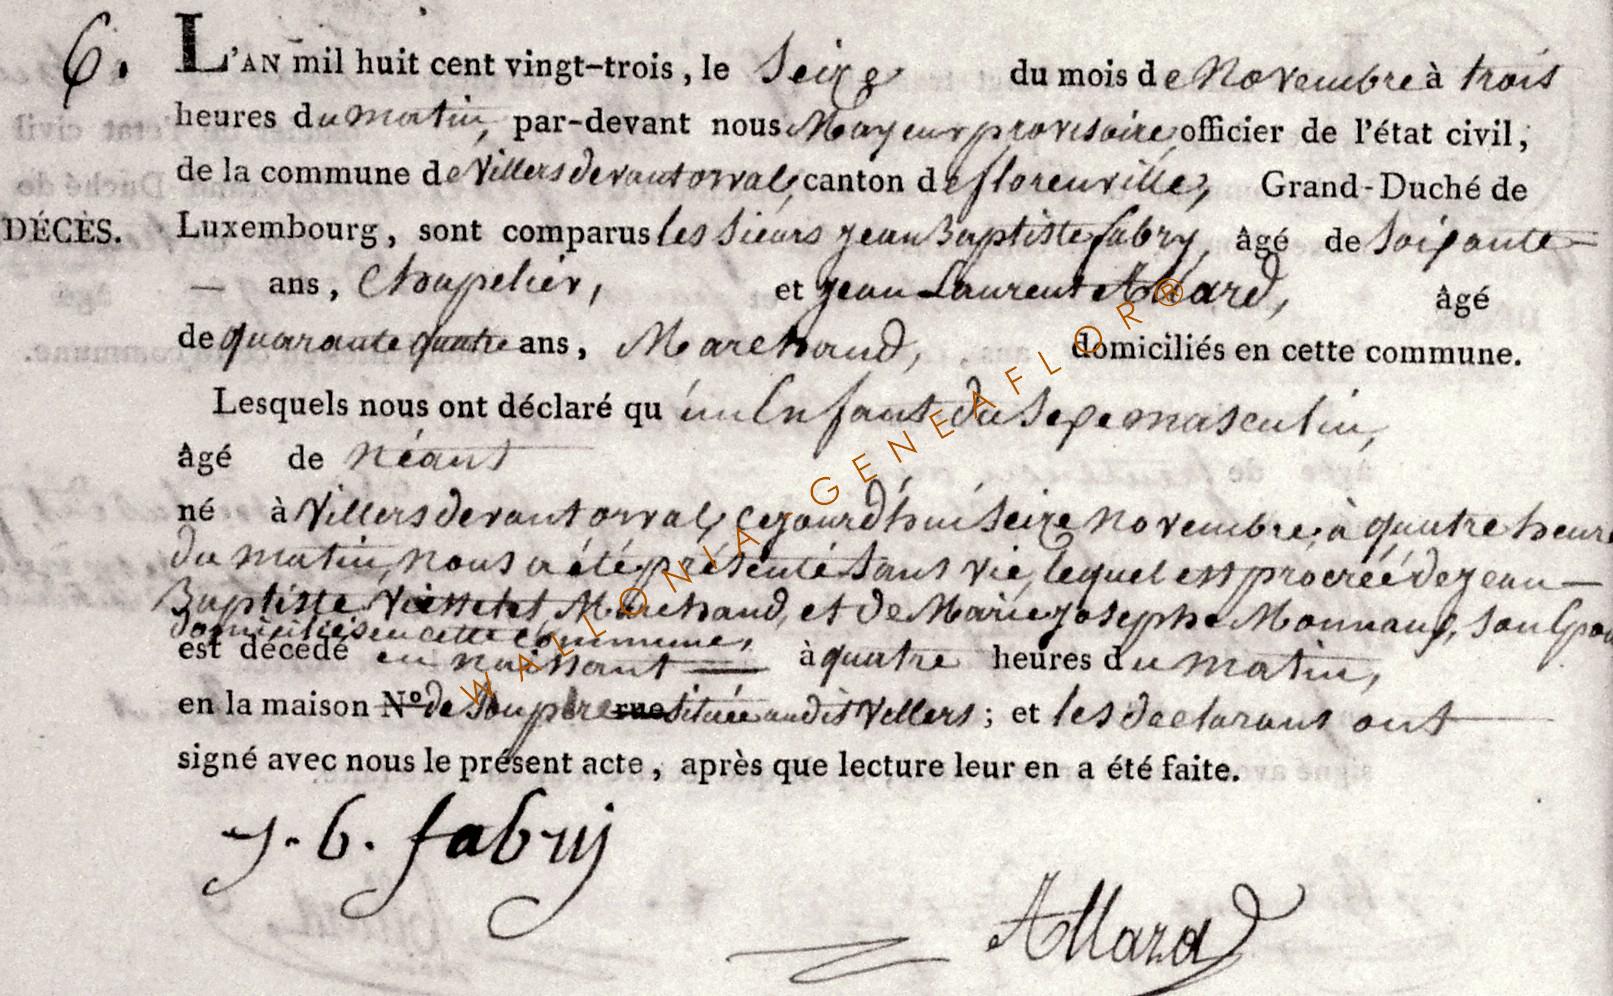 6. L'AN mil huit cent vingt-trois, le Seize du mois de Novembre à trois
heures du matin, par-devant nous Mayeur provisoire officier de l'état civil,
de la commune de Villers devant orval, canton de florenville, Grand-Duché de
DÉCÈS. Luxembourg, sont comparus les Sieurs jean Baptiste fabry, âgé de Soixante
— ans, Chapelier, et jean Laurent Allard, âgé
de quarante quatre ans, Marchand, domiciliés en cette commune.
Lesquels nous ont déclaré qu'un Enfant du Sexe masculin,
âgé de néant
né à Villers devant orval, cejourd'hui Seize novembre, à quatre heure
du matin, nous a été présenté Sans vie, lequel est procréé de jean —
Baptiste Marchand, et de Marie joseph Monnaux, son
domiciliés en cette commune,
est décédé en naissant à quatre heures du matin,
en la maison N° de Son père rue située audit Villers ; et les declarans ont
signé avec nous le présent acte, après que lecture leur en a été faite.
j. b. fabrij
Allard
WALLONIA - GENEAFLOR®